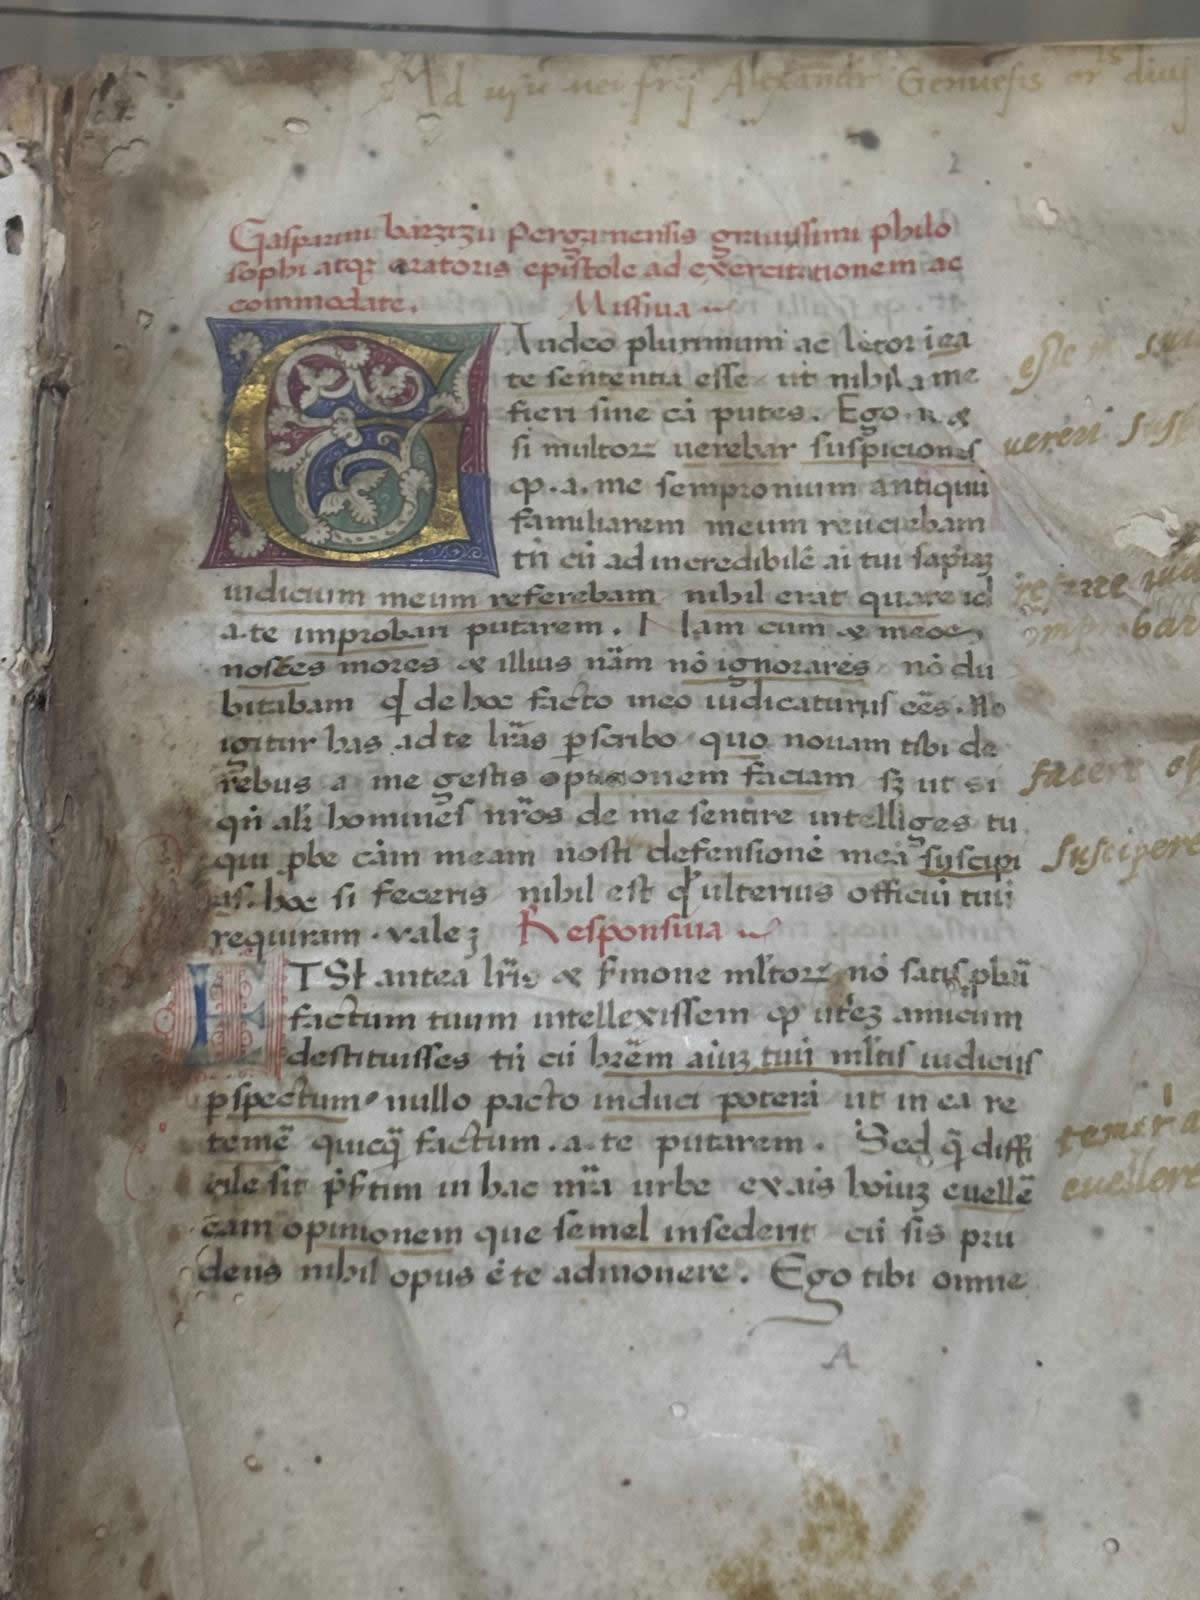 Ad usū nei frīj Alexandr Genuesis or^is diuj
2
Gasparini barzizii Pergamensis grauissimi philo
sophi atqꝫ oratoris epistole ad exercitationem ac
commodate. Missiua
GAudeo plurimum ac letor i ea
te sententia esse ut nihil a me
fieri sine cā putes. Ego .n. &
si multorꝫ uerebar suspiciones
qp .a. me sempronium antiquū
familiarem meum reiiciebam
tn̄ cū ad incredibilē ai tui sapiaꝫ
iudicium meum referebam nihil erat quare id
a te improbari putarem. Nam cum & meos
nosces mores & illius nām nō ignorares nō du
bitabam qd de hoc facto meo iudicaturus eēs. No
igitur has ad te lrās pscribo quo nouam tibi de
rebus a me gestis opinionem faciam sꝫ ut si
qn̄ alr̄ homines nr̄os de me sentire intelliges tu
qui pbe cām meam nosti defensionē meā suscipi
as. hoc si feceris nihil est qd ulterius officii tui
requiram. vale;
Responsiua
ETSI antea lrīs & smone mltorꝫ nō satis pbū
factum tuum intellexissem qp uterꝫ amicum
destituisses tn̄ cū brēm aiuꝫ tuū mltis iudiciis
pspectum nullo pacto induci poterā ut in ea re
temē quicq̄ factum .a. te putarem. Sed q̄ diffi
cile sit p̄stim in hac nrā urbe ex ais hoiuꝫ euellē
eam opinionem que semel insederit cū sis pru
dens nihil opus ē te admonere. Ego tibi omne
A
uereri susp
referre iud
improbar
facere op
suscipere
temer a
euellere